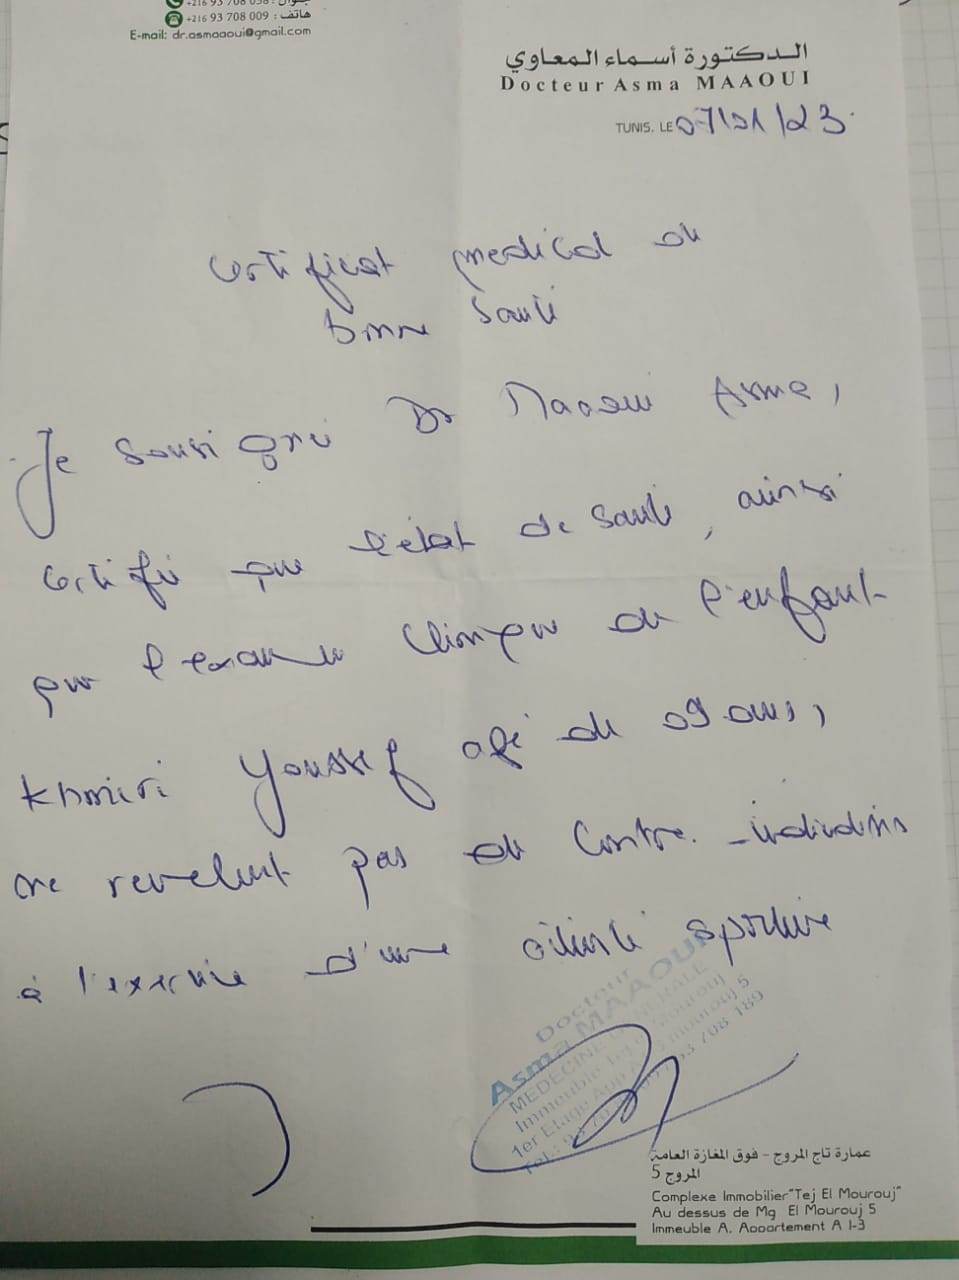 +216 93 708 038 : جوال
+216 93 708 009 : هاتف
E-mail: dr.asmaaoui@gmail.com
الدكتورة أسماء المعاوي
Docteur Asma MAAOUI
TUNIS. LE 07/01/23
Certificat medical de
bonne Santé
Je sousigné Dr Maaoui Asma,
certifie que l'état de santé, ainsi
que l'examen clinique de l'enfant
Khmiri Youssef agé de 09 ans,
ne revelent pas de contre-indications
à l'exercice d'une activité sportive
Docteur
Asma MAAOUI
MEDECINE GENERALE
Immeuble Tej El Mourouj
1er Etage App mourouj 5
Tel.: 93 708 189
عمارة تاج المروج - فوق المغازة العامة
المروج 5
Complexe Immobilier "Tej El Mourouj"
Au dessus de Mg El Mourouj 5
Immeuble A. Appartement A 1-3